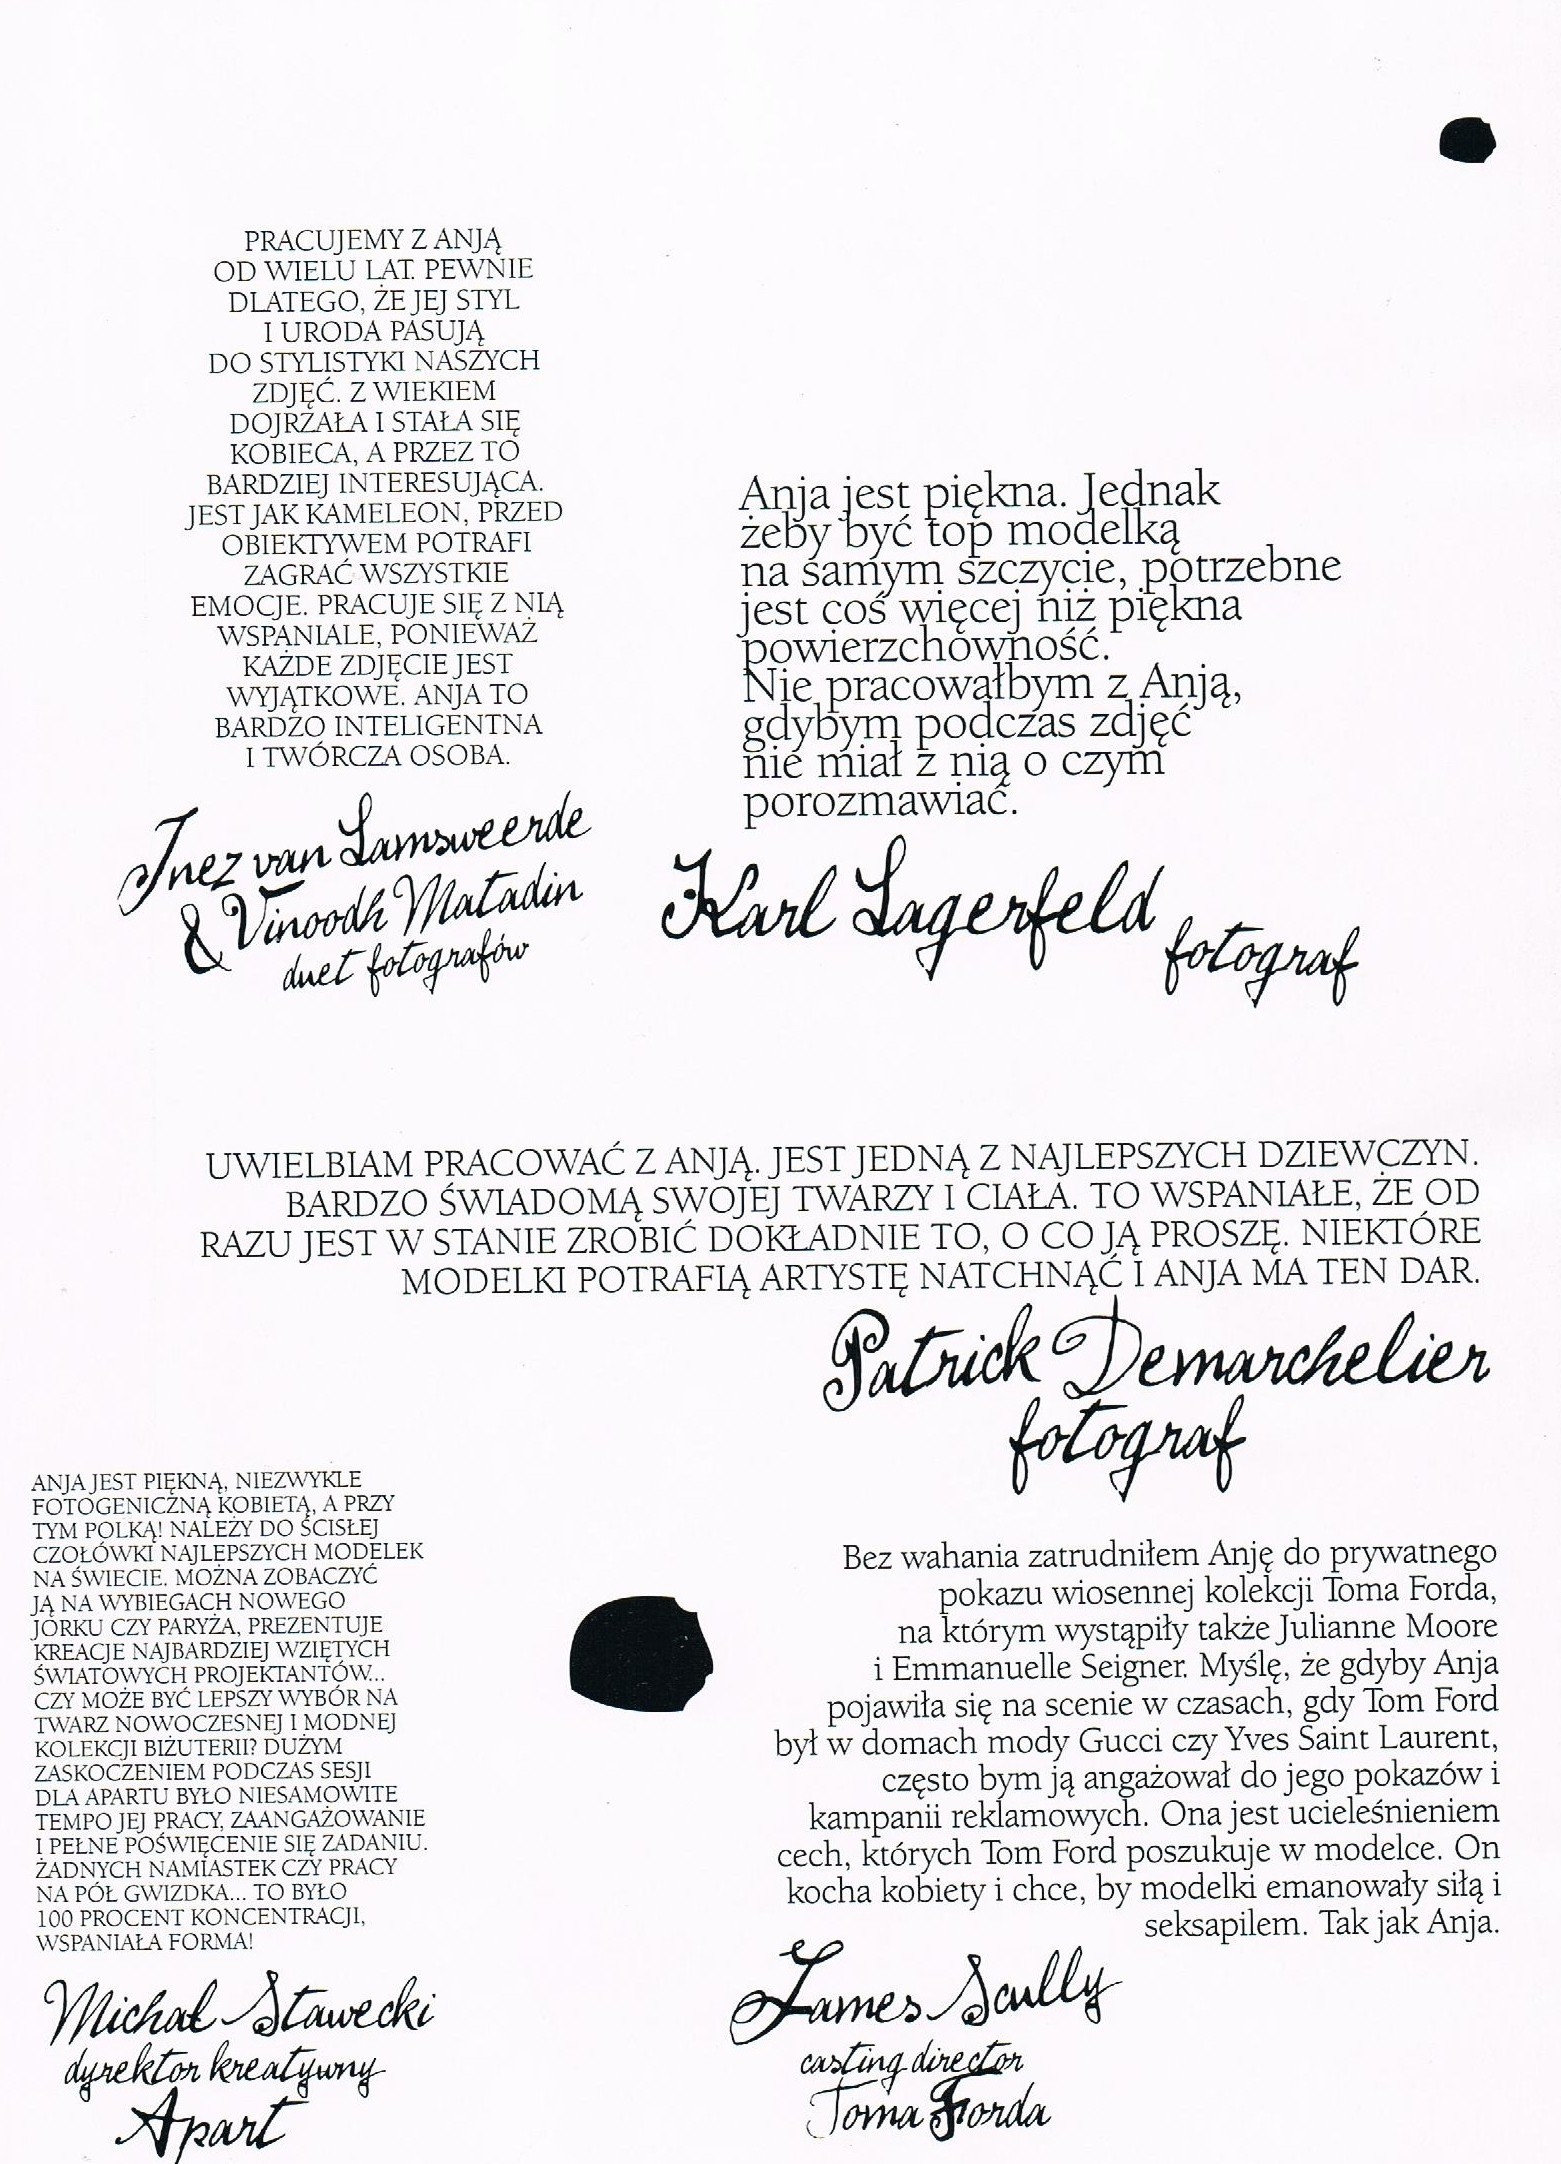 PRACUJEMY Z ANJĄ
OD WIELU LAT. PEWNIE
DLATEGO, ŻE JEJ STYL
I URODA PASUJĄ
DO STYLISTYKI NASZYCH
ZDJĘĆ. Z WIEKIEM
DOJRZAŁA I STAŁA SIĘ
KOBIECA, A PRZEZ TO
BARDZIEJ INTERESUJĄCA.
JEST JAK KAMELEON, PRZED
OBIEKTYWEM POTRAFI
ZAGRAĆ WSZYSTKIE
EMOCJE. PRACUJE SIĘ Z NIĄ
WSPANIALE, PONIEWAŻ
KAŻDE ZDJĘCIE JEST
WYJĄTKOWE. ANJA TO
BARDZO INTELIGENTNA
I TWÓRCZA OSOBA.
Inez van Lamsweerde
& Vinoodh Matadin
duet fotografów
Anja jest piękna. Jednak
żeby być top modelką
na samym szczycie, potrzebne
jest coś więcej niż piękna
powierzchowność.
Nie pracowałbym z Anją,
gdybym podczas zdjęć
nie miał z nią o czym
porozmawiać.
Karl Lagerfeld
fotograf
UWIELBIAM PRACOWAĆ Z ANJĄ. JEST JEDNĄ Z NAJLEPSZYCH DZIEWCZYN.
BARDZO ŚWIADOMĄ SWOJEJ TWARZY I CIAŁA. TO WSPANIAŁE, ŻE OD
RAZU JEST W STANIE ZROBIĆ DOKŁADNIE TO, O CO JĄ PROSZĘ. NIEKTÓRE
MODELKI POTRAFIĄ ARTYSTĘ NATCHNĄĆ I ANJA MA TEN DAR.
Patrick Demarchelier
fotograf
ANJA JEST PIĘKNĄ, NIEZWYKLE
FOTOGENICZNĄ KOBIETĄ, A PRZY
TYM POLKĄ! NALEŻY DO ŚCISŁEJ
CZOŁÓWKI NAJLEPSZYCH MODELEK
NA ŚWIECIE. MOŻNA ZOBACZYĆ
JĄ NA WYBIEGACH NOWEGO
JORKU CZY PARYŻA, PREZENTUJE
KREACJE NAJBARDZIEJ WZIĘTYCH
ŚWIATOWYCH PROJEKTANTÓW...
CZY MOŻE BYĆ LEPSZY WYBÓR NA
TWARZ NOWOCZESNEJ I MODNEJ
KOLEKCJI BIŻUTERII? DUŻYM
ZASKOCZENIEM PODCZAS SESJI
DLA APARTU BYŁO NIESAMOWITE
TEMPO JEJ PRACY, ZAANGAŻOWANIE
I PEŁNE POŚWIĘCENIE SIĘ ZADANIU.
ŻADNYCH NAMIASTEK CZY PRACY
NA PÓŁ GWIZDKA... TO BYŁO
100 PROCENT KONCENTRACJI,
WSPANIAŁA FORMA!
Michał Stawecki
dyrektor kreatywny
Apart
Bez wahania zatrudniłem Anję do prywatnego
pokazu wiosennej kolekcji Toma Forda,
na którym wystąpiły także Julianne Moore
i Emmanuelle Seigner. Myślę, że gdyby Anja
pojawiła się na scenie w czasach, gdy Tom Ford
był w domach mody Gucci czy Yves Saint Laurent,
często bym ją angażował do jego pokazów i
kampanii reklamowych. Ona jest ucieleśnieniem
cech, których Tom Ford poszukuje w modelce. On
kocha kobiety i chce, by modelki emanowały siłą i
seksapilem. Tak jak Anja.
James Scully
casting director
Toma Forda